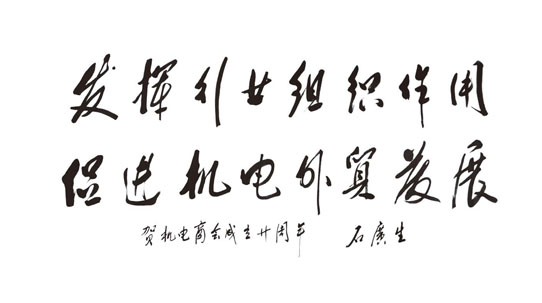 发揮行业组织作用
促进机电外貿發展
贺机电商会成立廿周年 石廣生